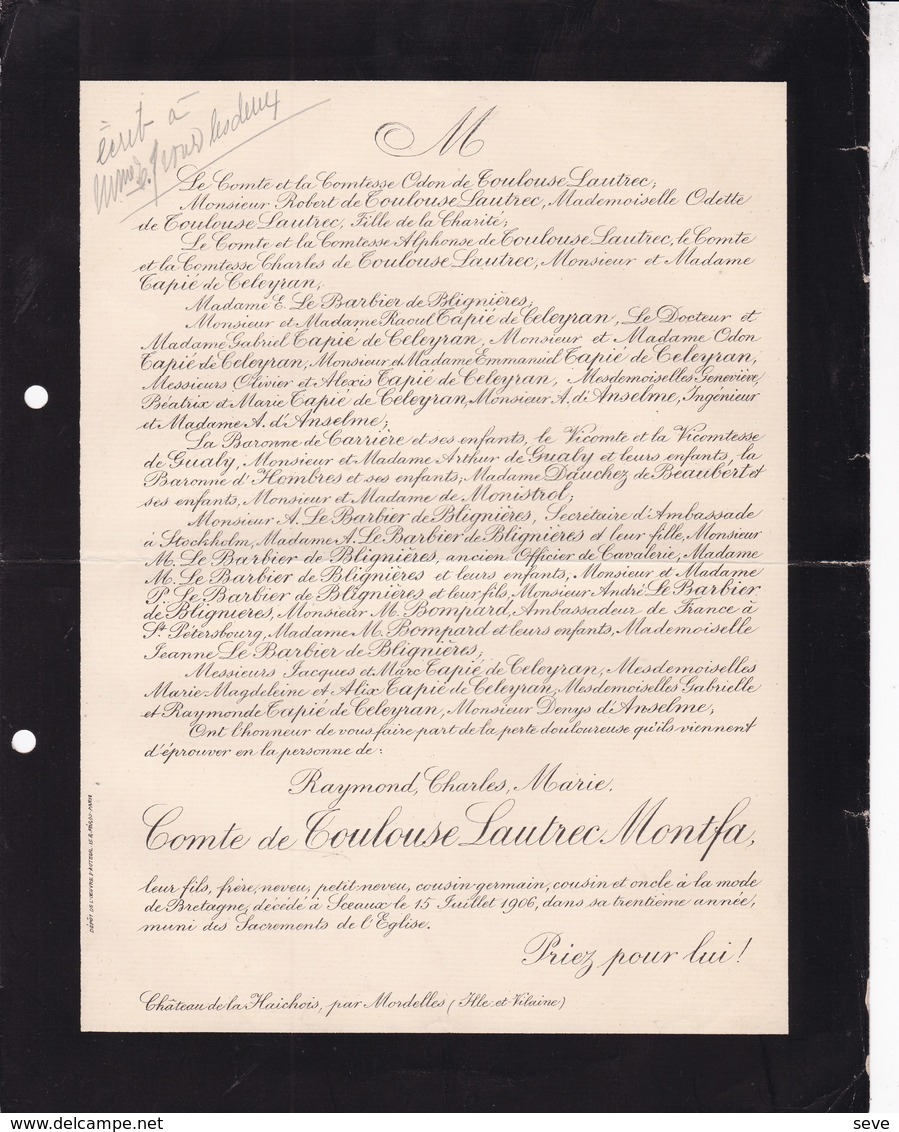 écrit à
M
Le Comte et la Comtesse Odon de Toulouse Lautrec;
Monsieur Robert de Toulouse Lautrec, Mademoiselle Odette
de Toulouse Lautrec, Fille de la Charité;
Le Comte et la Comtesse Alphonse de Toulouse Lautrec, le Comte
et la Comtesse Charles de Toulouse Lautrec, Monsieur et Madame
Tapié de Celeyran;
Madame E. Le Barbier de Blignières;
Monsieur et Madame Raoul Tapié de Celeyran, Le Docteur et
Madame Gabriel Tapié de Celeyran, Monsieur et Madame Odon
Tapié de Celeyran, Monsieur et Madame Emmanuel Tapié de Celeyran,
Messieurs Olivier et Alexis Tapié de Celeyran, Mesdemoiselles Geneviève,
Béatrix et Marie Tapié de Celeyran, Monsieur A. d'Anselme, Ingénieur
et Madame A. d'Anselme;
La Baronne de Carrière et ses enfants, le Vicomte et la Vicomtesse
de Gualy, Monsieur et Madame Arthur de Gualy et leurs enfants, la
Baronne d'Hombres et ses enfants; Madame Dauchez de Beaubert et
ses enfants, Monsieur et Madame de Monistrol;
Monsieur A. Le Barbier de Blignières, Secrétaire d'Ambassade
à Stockholm, Madame A. Le Barbier de Blignières et leur fille, Monsieur
M. Le Barbier de Blignières, ancien Officier de Cavalerie, Madame
M. Le Barbier de Blignières et leurs enfants, Monsieur et Madame
P. Le Barbier de Blignières et leur fils, Monsieur André Le Barbier
de Blignières, Monsieur M. Bompard, Ambassadeur de France à
St. Pétersbourg, Madame M. Bompard et leurs enfants, Mademoiselle
Jeanne Le Barbier de Blignières;
Messieurs Jacques et Marc Tapié de Celeyran, Mesdemoiselles
Marie-Magdeleine et Alix Tapié de Celeyran, Mesdemoiselles Gabrielle
et Raymonde Tapié de Celeyran, Monsieur Denys d'Anselme;
Ont l'honneur de vous faire part de la perte douloureuse qu'ils viennent
d'éprouver en la personne de:
Raymond, Charles, Marie,
Comte de Toulouse Lautrec Montfa,
leur fils, frère, neveu, petit-neveu, cousin-germain, cousin et oncle à la mode
de Bretagne, décédé à Sceaux le 15 Juillet 1906, dans sa trentième année,
muni des Sacrements de l'Eglise.
Priez pour lui!
Château de la Haichois, par Mordelles (Ille et Vilaine)
delcampe.net
seve